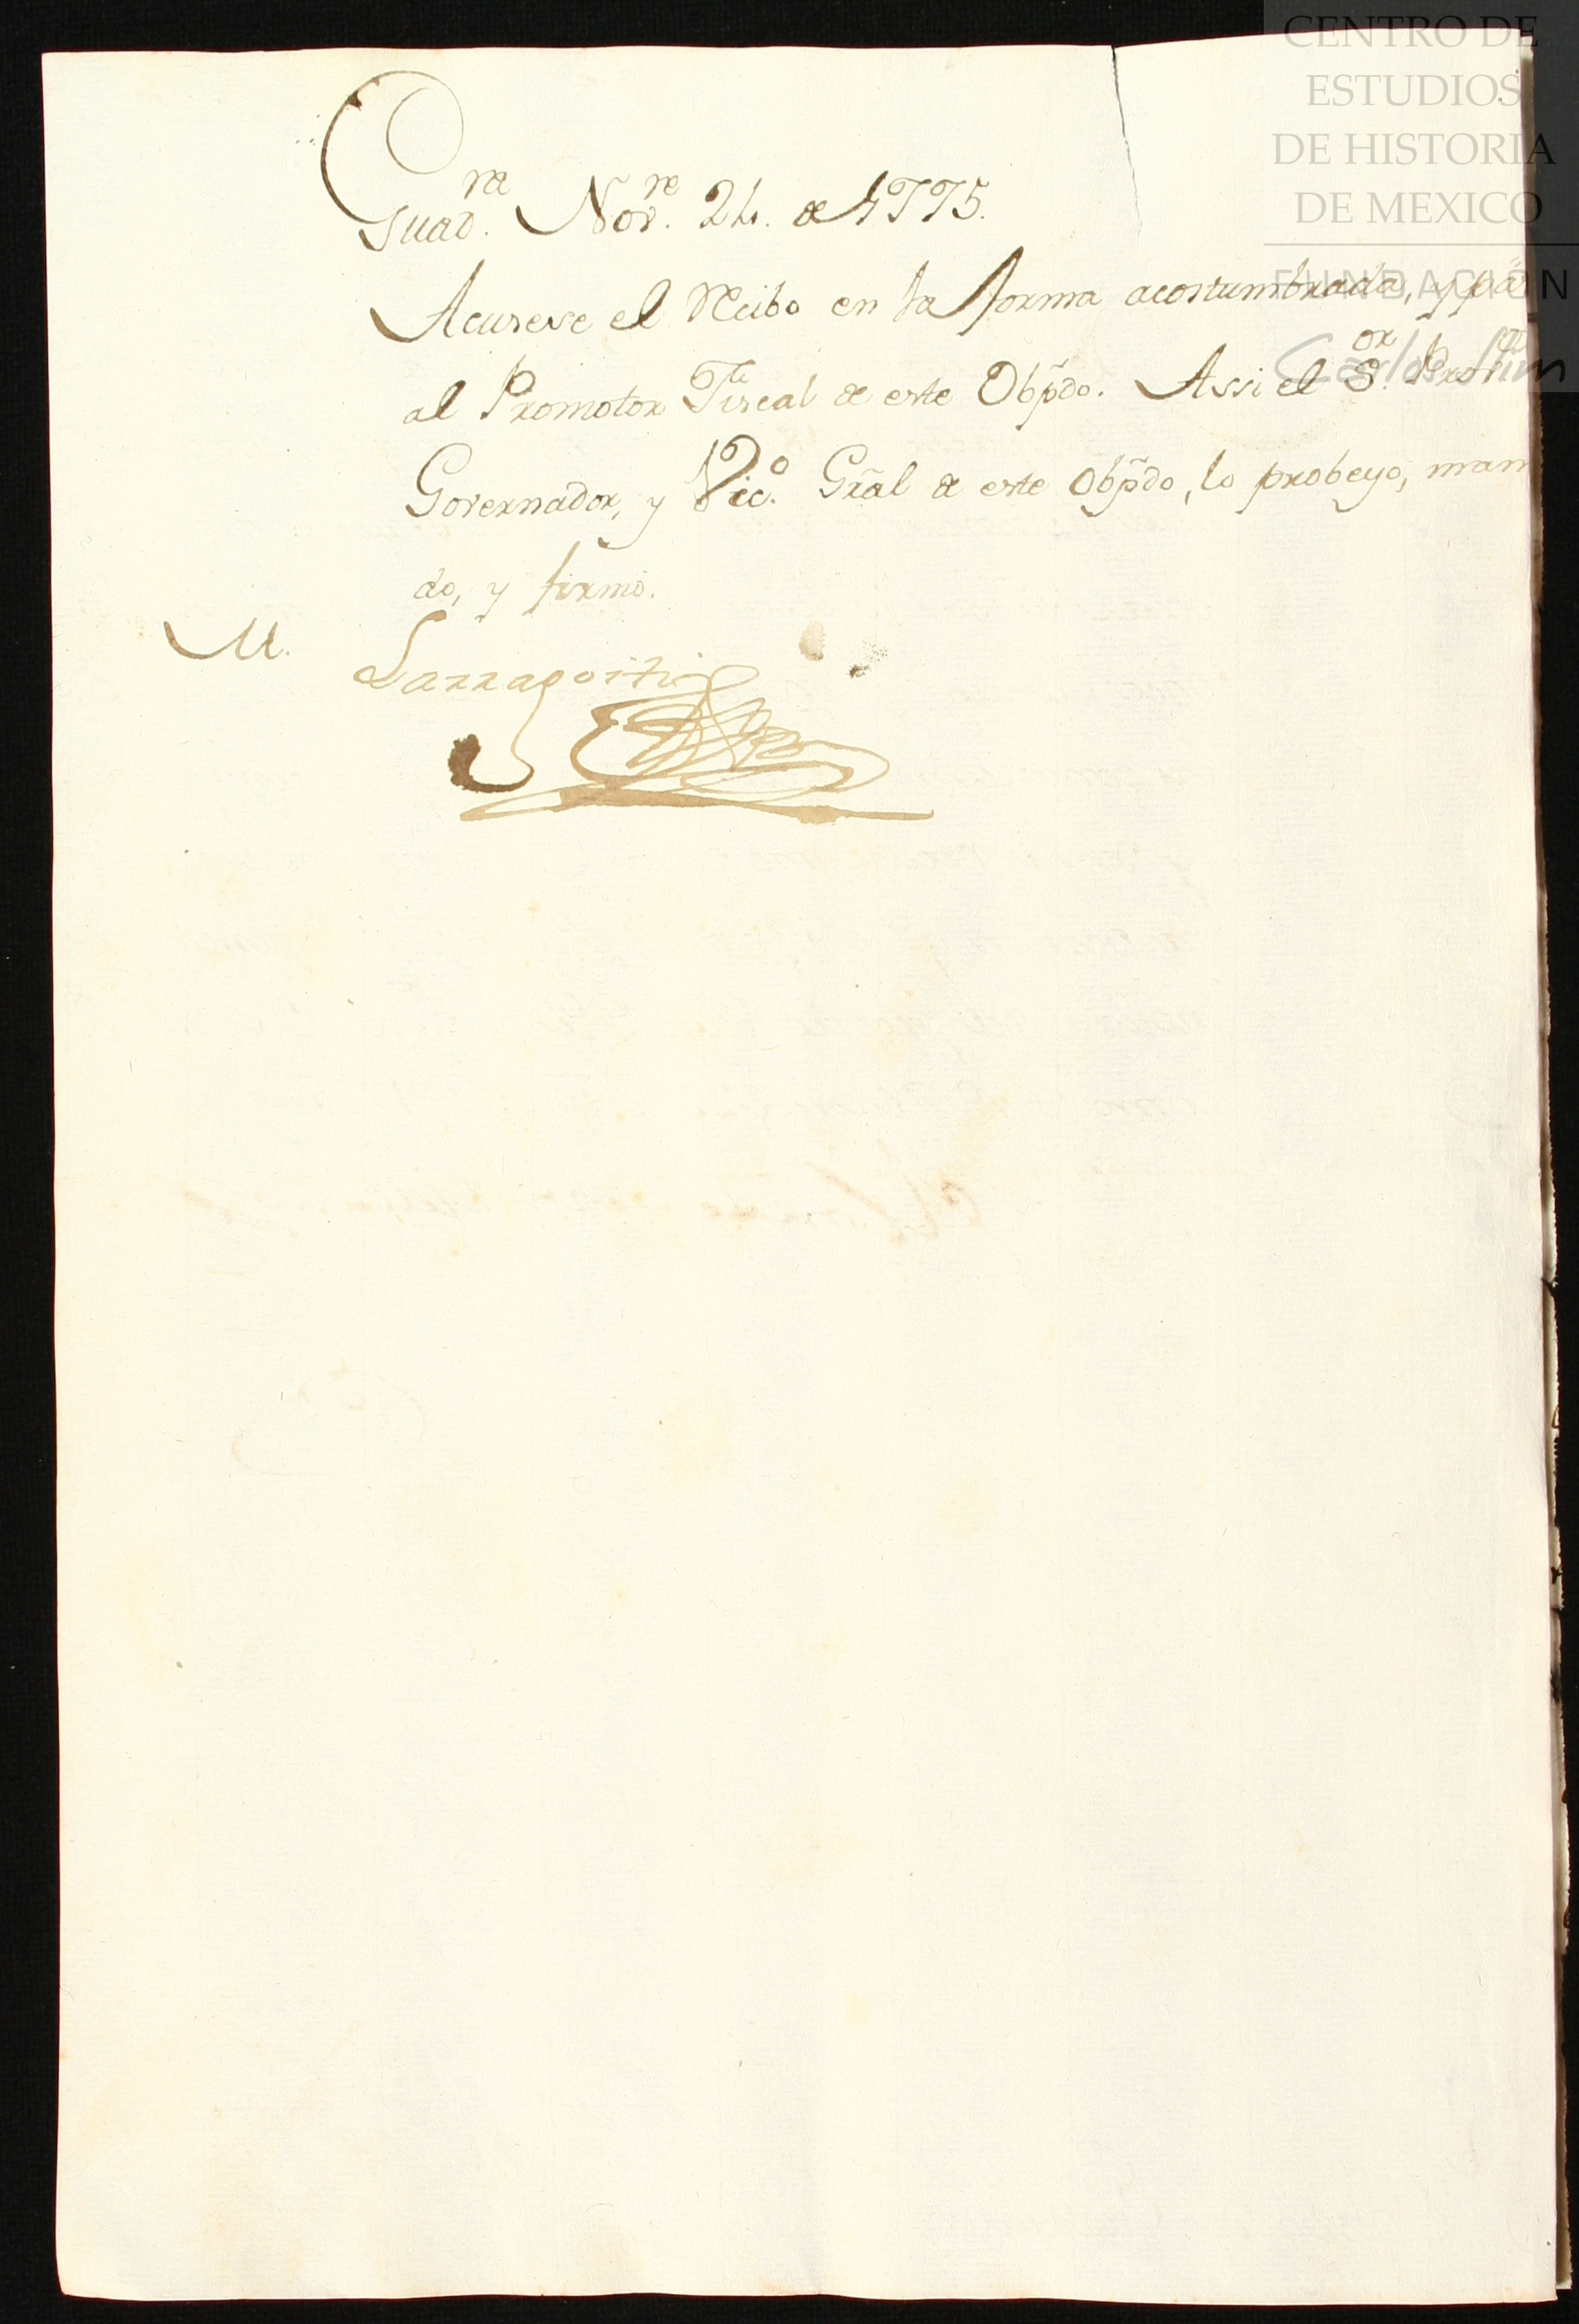 CENTRO DE
ESTUDIOS
DE HISTORIA
DE MEXICO
FUNDACIÓN
Carlos Slim
Guad.ra Nov.re 24. de 1775.
Acusese el Recibo en la forma acostumbrada, y
al Promotor Fiscal de este Obp̃do. Assi el S.or
Governador, y Vic.o Grãl de este Obp̃do, lo probeyo, man
do, y firmó.
M.
Larragoiti